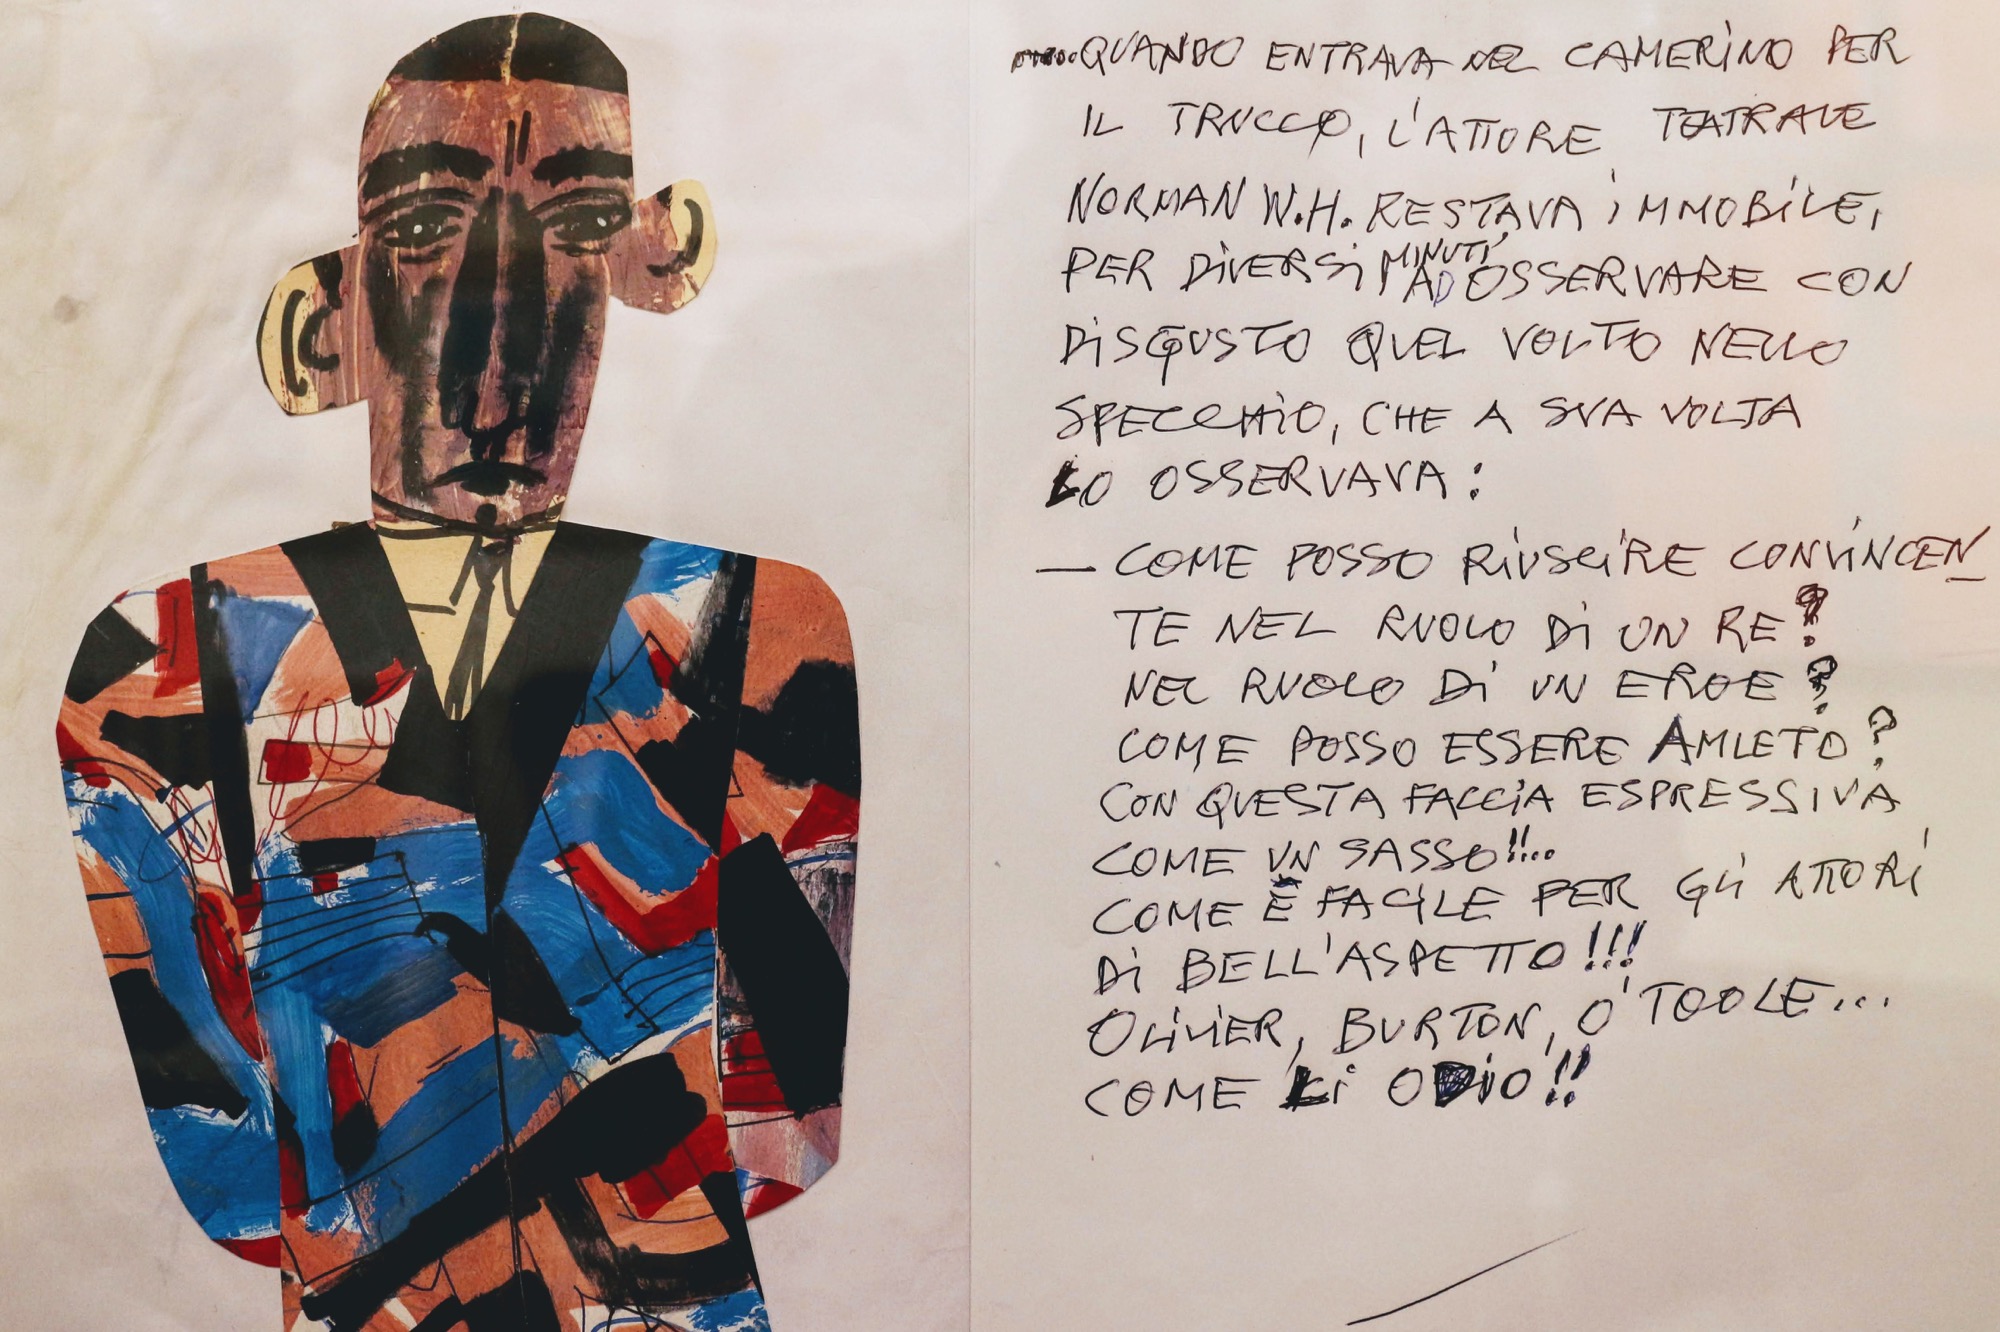 ...QUANDO ENTRAVA NEL CAMERINO PER
IL TRUCCO, L'ATTORE TEATRALE
NORMAN W.H. RESTAVA IMMOBILE,
PER DIVERSI MINUTI, AD OSSERVARE CON
DISGUSTO QUEL VOLTO NELLO
SPECCHIO, CHE A SUA VOLTA
LO OSSERVAVA:
— COME POSSO RIUSCIRE CONVINCEN_
TE NEL RUOLO DI UN RE?
NEL RUOLO DI UN EROE?
COME POSSO ESSERE AMLETO?
CON QUESTA FACCIA ESPRESSIVA
COME UN SASSO!!...
COME È FACILE PER GLI ATTORI
DI BELL'ASPETTO!!!
OLIVIER, BURTON, O'TOOLE...
COME LI ODIO!!